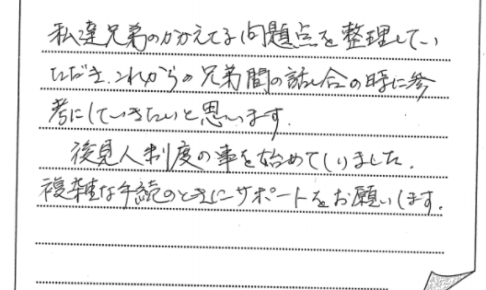 私達兄弟のかかえてる問題点を整理してい
ただき、これからの兄弟間の話し合の時に参
考にしていきたいと思います。
後見人制度の事を始めてしりました。
複雑な手続のときにサポートをお願いします。